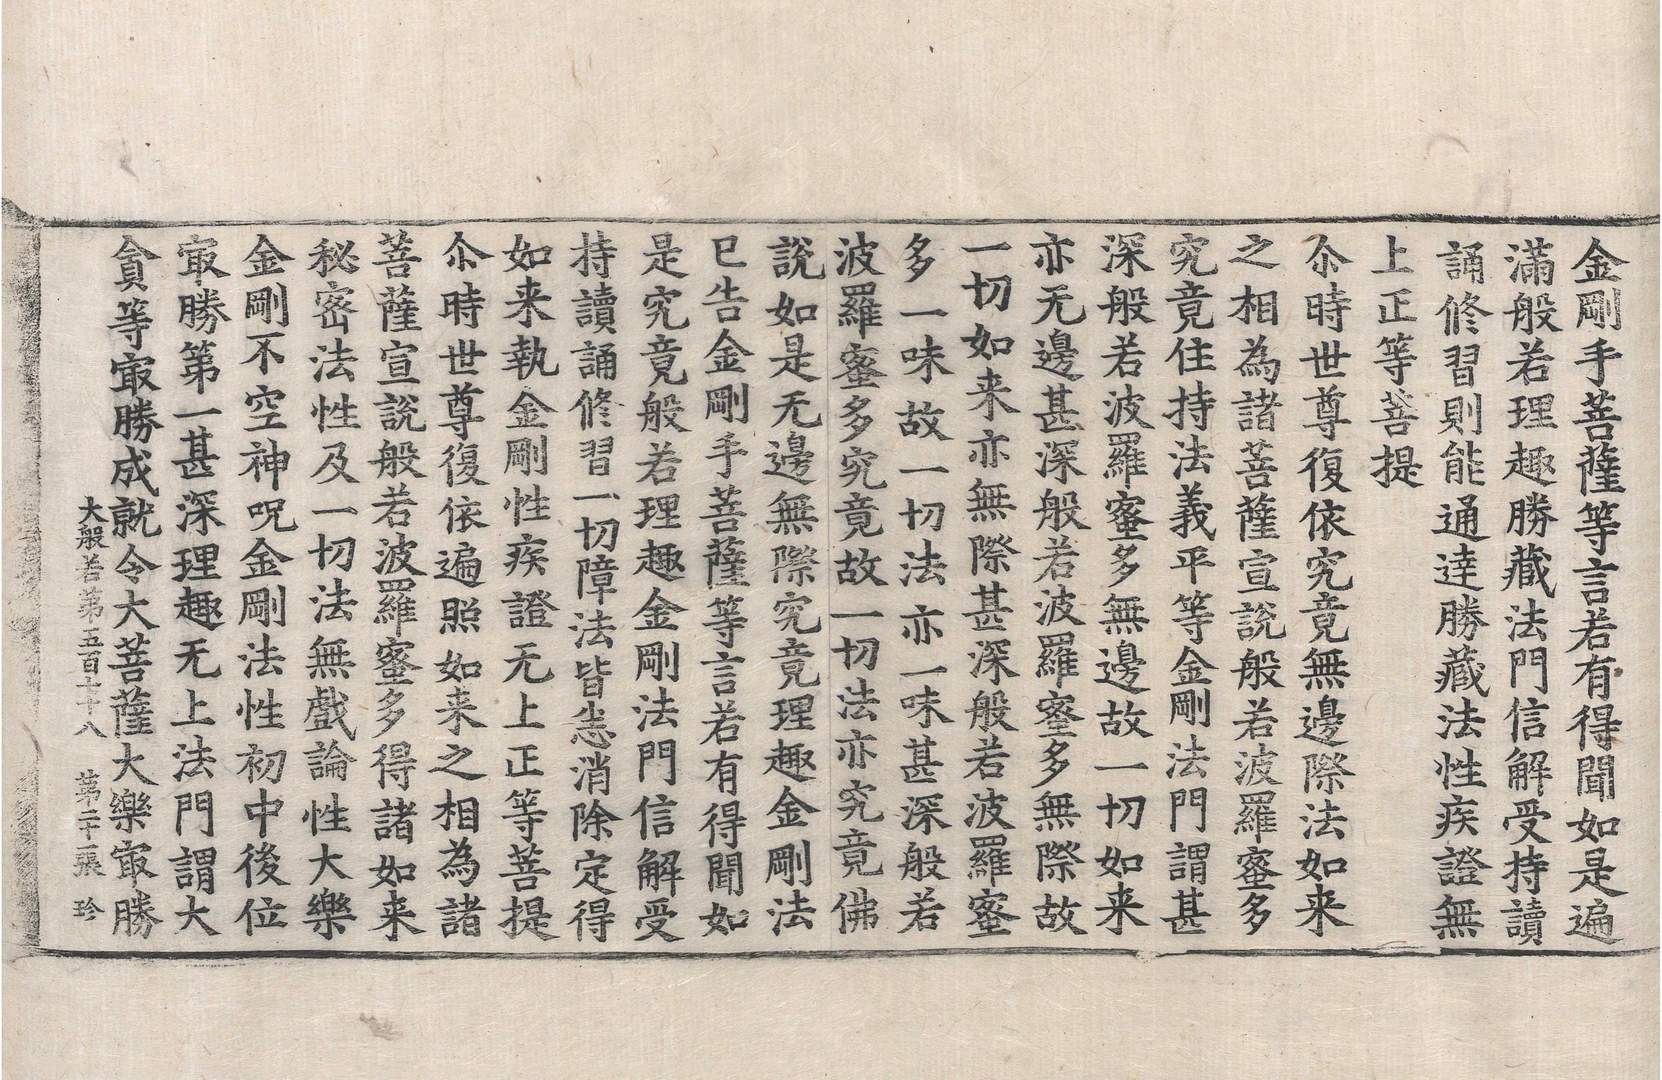 金剛手菩薩等言若有得聞如是遍
滿般若理趣勝藏法門信解受持讀
誦修習則能通達勝藏法性疾證無
上正等菩提
尒時世尊復依究竟無邊際法如来
之相為諸菩薩宣說般若波羅蜜多
究竟住持法義平等金剛法門謂甚
深般若波羅蜜多無邊故一切如来
亦无邊甚深般若波羅蜜多無際故
一切如来亦無際甚深般若波羅蜜
多一味故一切法亦一味甚深般若
波羅蜜多究竟故一切法亦究竟佛
說如是无邊無際究竟理趣金剛法
已告金剛手菩薩等言若有得聞如
是究竟般若理趣金剛法門信解受
持讀誦修習一切障法皆悉消除定得
如来執金剛性疾證无上正等菩提
尒時世尊復依遍照如来之相為諸
菩薩宣說般若波羅蜜多得諸如来
秘密法性及一切法無戲論性大樂
金剛不空神呪金剛法性初中後位
冣勝第一甚深理趣无上法門謂大
貪等冣勝成就令大菩薩大樂冣勝
大般若第五百七十八　第二十一張　珍